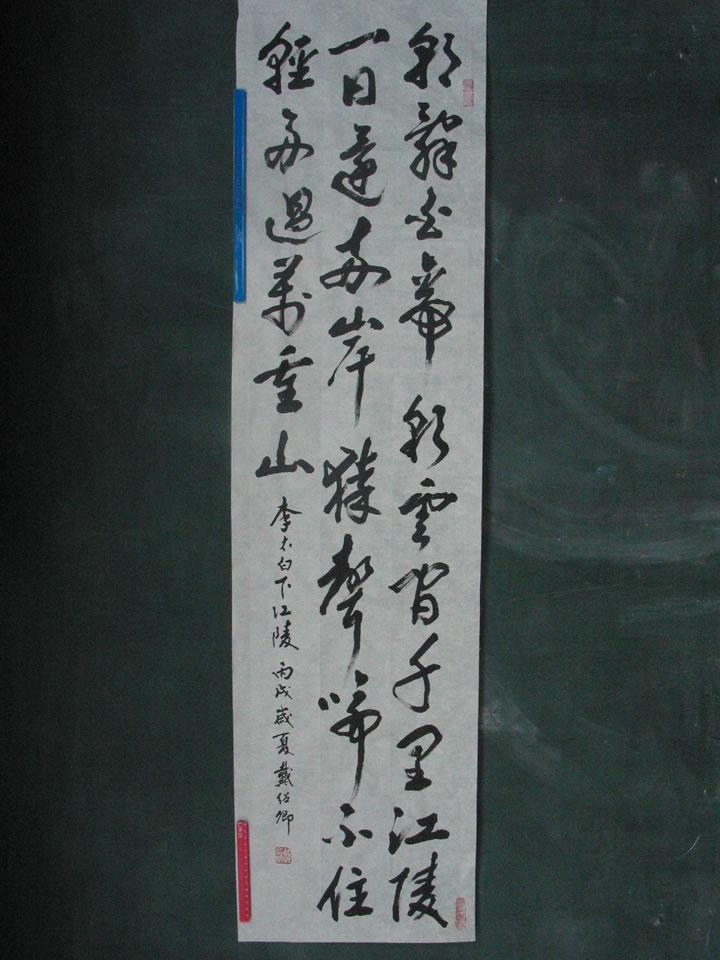 朝辭白帝彩雲間千里江陵
一日還兩岸猿聲啼不住
輕舟過萬重山
李太白下江陵 丙戌歲夏 戴紹卿